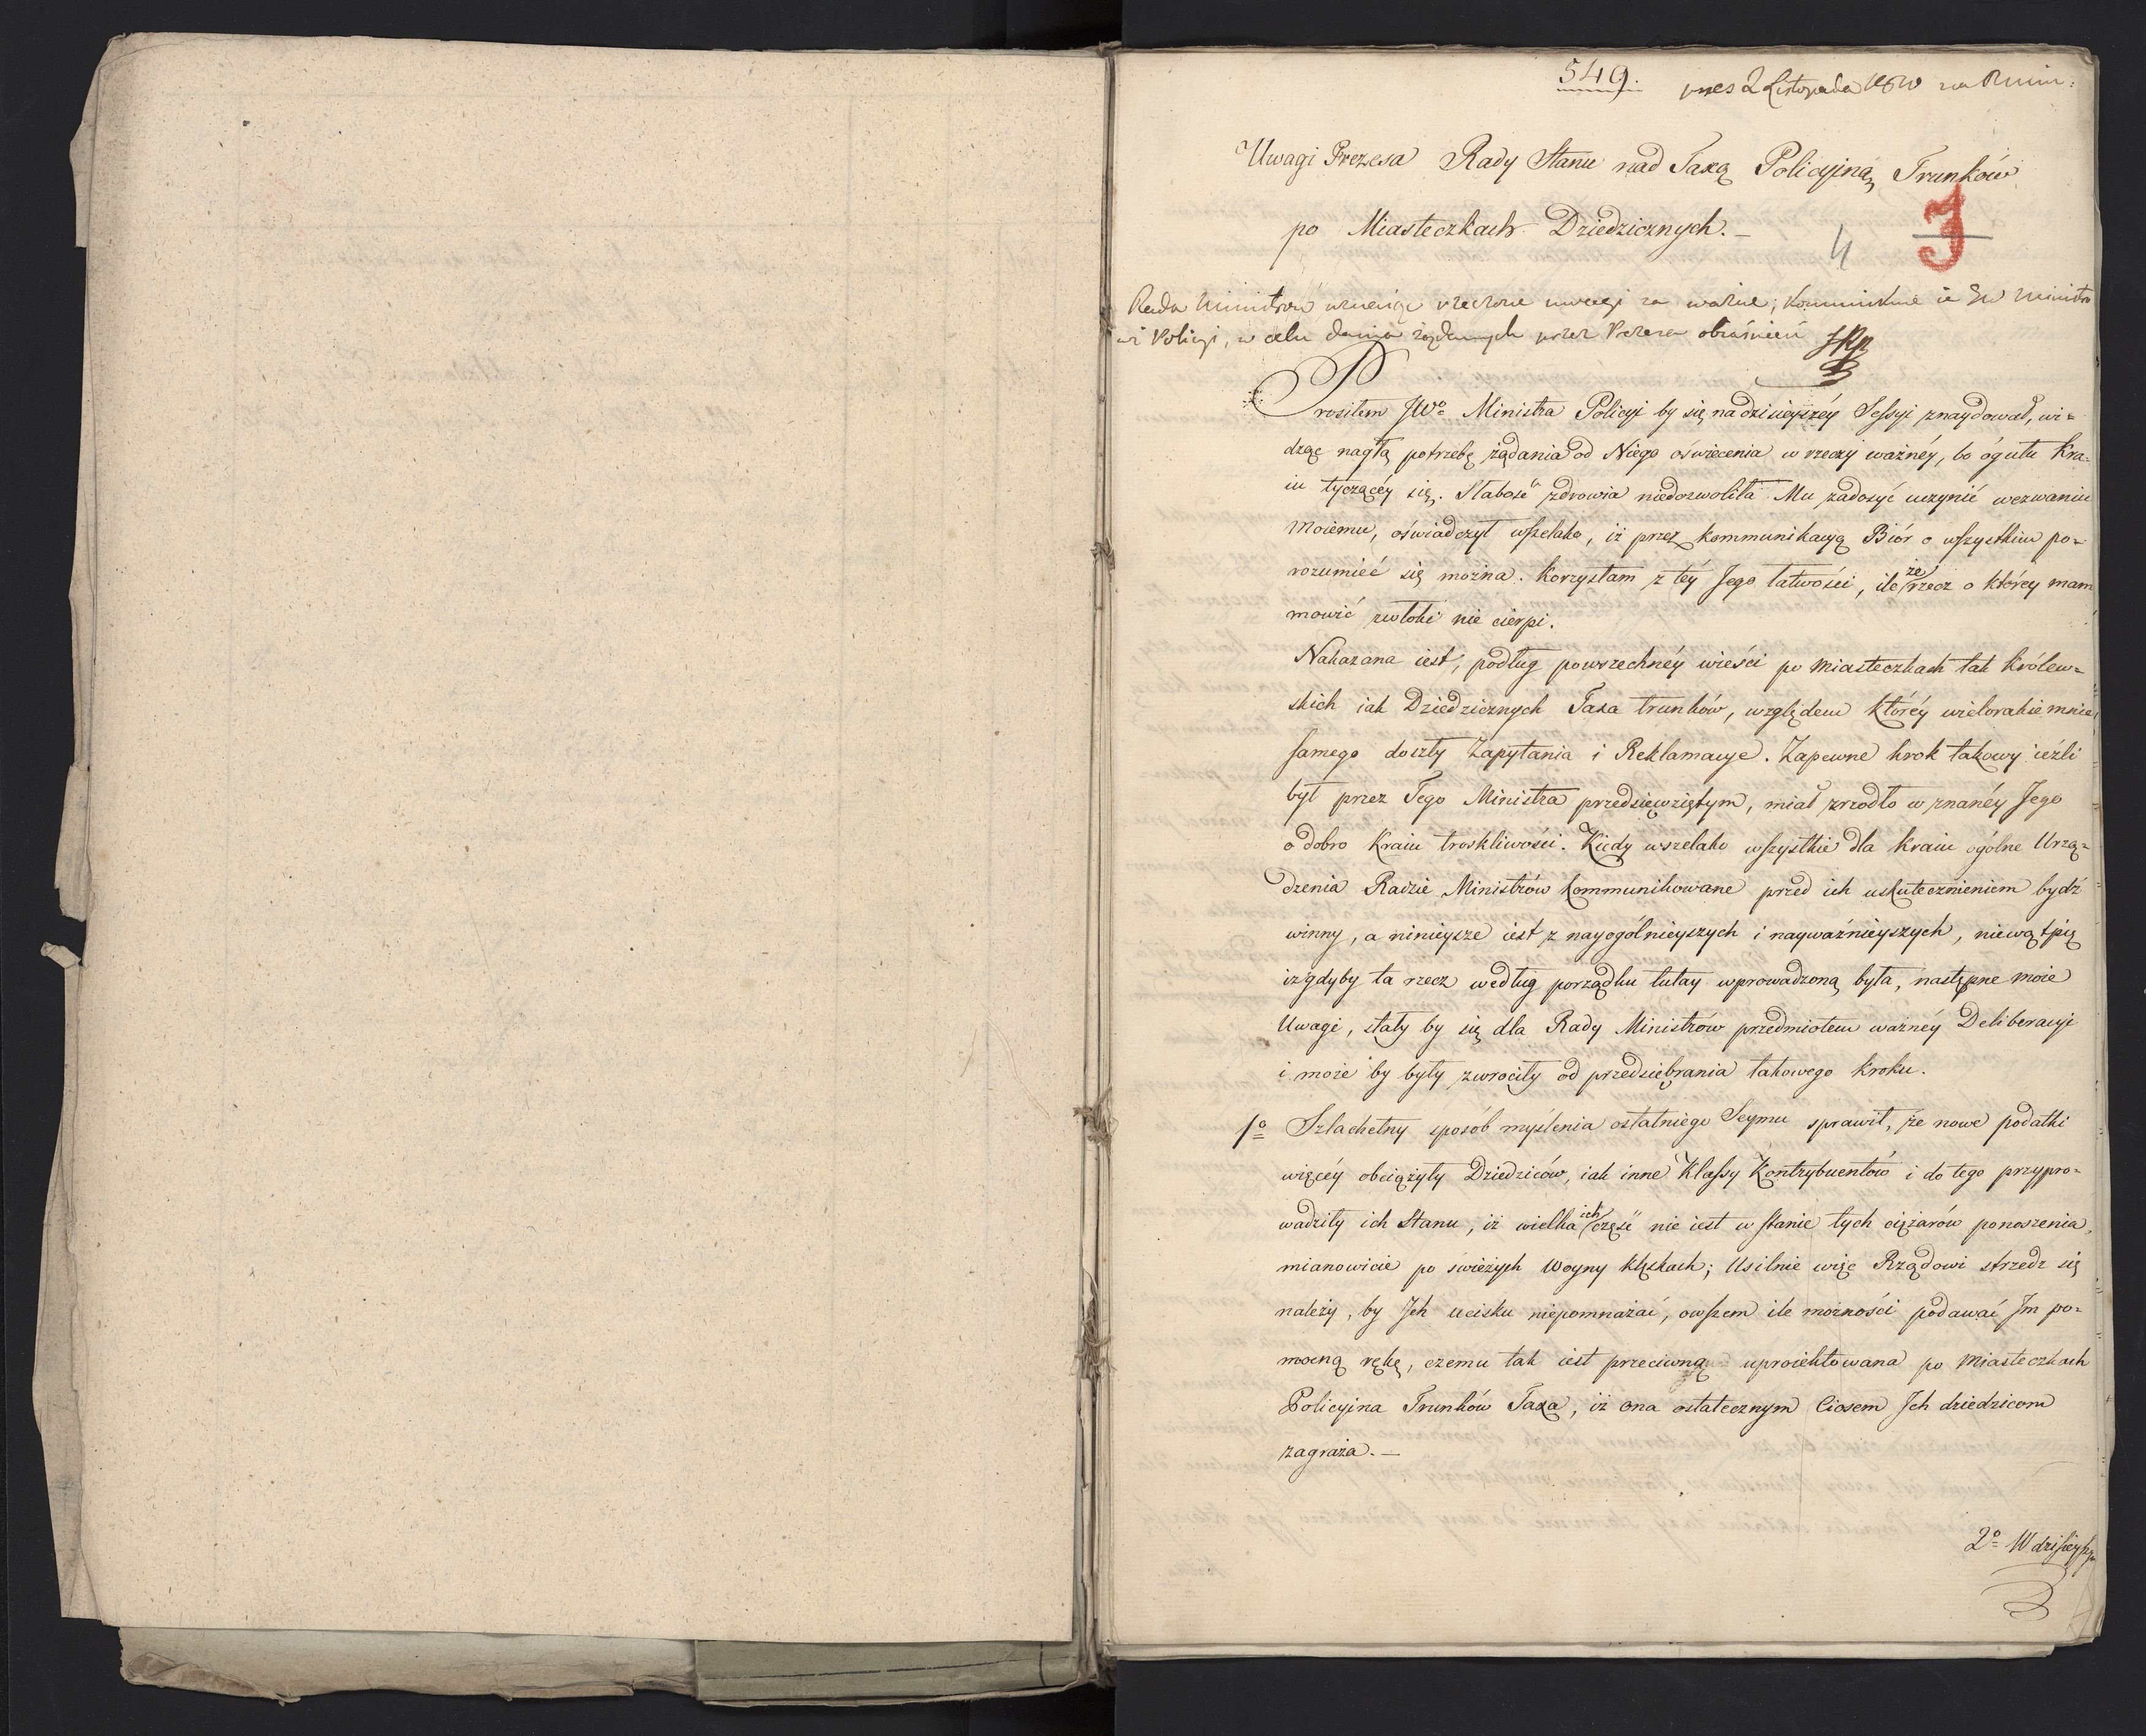 549.
pres 2 Listopada
Uwagi Prezesa Rady Stanu nad Taxą Policyiną Trunków
po Miasteczkach Dziedzicznych. _
4
J
Rada Ministrów uważaiąc rzeczone uwagi za ważne; kommunikuie ie JW Ministro
wi Policyi, w celu dania żądanych przez Prezesa obiaśnień
Prosiłem JWo Ministra Policyi by się na dzisieyszéy Sessyi znaydował, wi=
dząc nagłą potrzebę żądania od Niego oświecenia w rzeczy ważnéy, bo ógułu Kra=
iu tyczącéy się. Słabość zdrowia niedozwoliła Mu zadosyć uczynić wezwaniu
moiemu, oświadczył wszelako, iż przez kommunikacyą Biór o wszystkim po=
rozumieć się można. Korzystam z téy Jego łatwości, ile że rzecz o którey mam
mowić zwłoki nie cierpi.
Nakazana iest, podług powszechnéy wieści po miasteczkach tak Królew=
skich iak Dziedzicznych Taxa trunków, względem któréy wielorakie mnie
samego doszły Zapytania i Reklamacye. Zapewne krok takowy ieźli
był przez Tego Ministra przedsięwziętym, miał zrzodło w znanéy Jego
o dobro Kraiu troskliwości. Kiedy wszelako wszystkie dla kraiu ogólne Urzą=
dzenia Radzie Ministrów kommunikowane przed ich uskutecznieniem bydź
winny, a ninieysze iest z nayogólnieyszych i nayważnieyszych, niewątpię
iż gdyby ta rzecz według porządku tutay wprowadzoną była, następne moie
Uwagi, stały by się dla Rady Ministrów przedmiotem ważnéy Deliberacyi
i może by były zwrociły od przedsiębrania takowego kroku.
1o Szlachetny sposób myślenia ostatniego Seymu sprawił, że nowe podatki
więcéy obciążyły Dziedziców, iak inne Klassy Kontrybuentów i do tego przypro=
wadziły ich Stanu, iż wielka ich część nie iest w stanie tych ciężarów ponoszenia,
mianowicie po swieżych Woyny klęskach; Usilnie więc Rządowi strzedz się
należy, by Jch ucisku niepomnażać, owszem ile możności podawać Jm po=
mocną rękę, czemu tak iest przeciwną uproiektowana po Miasteczkach
Policyina Trunków Taxa, iż ona ostatecznym Ciosem Jch dziedzicom
zagraża. _
2o W dzisieysz